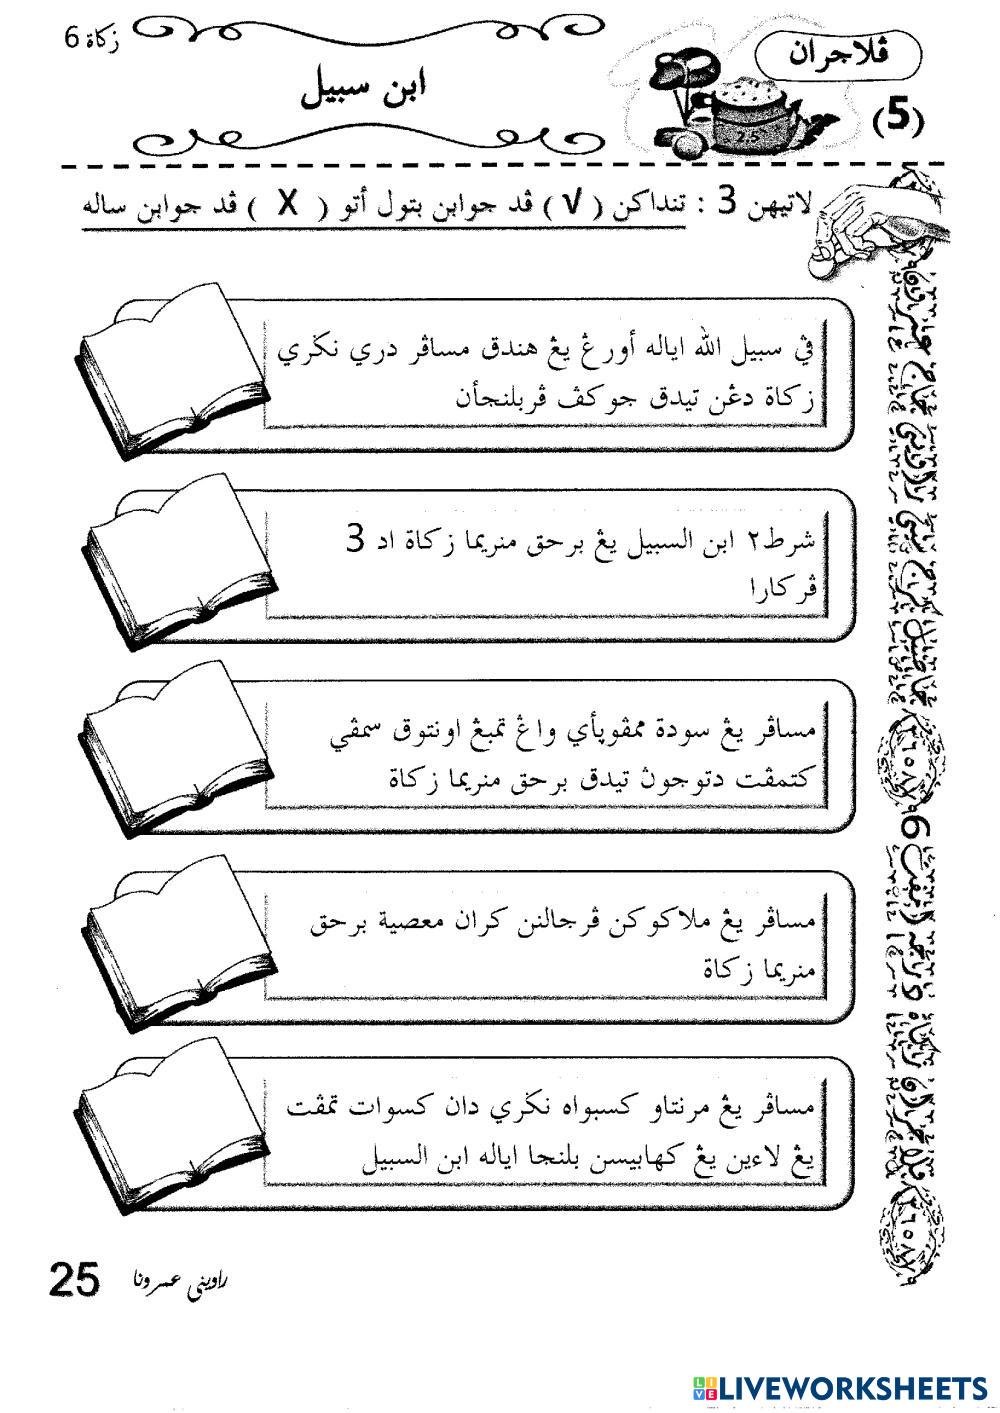 زكاة 6
ڤلاجران
(5)
ابن سبيل
لاتيهن 3 : تنداكن ( √ ) ڤد جوابن بتول أتو ( X ) ڤد جوابن ساله
في سبيل الله اياله أورڠ يڠ هندق مسافر دري نݢري
زكاة دڠن تيدق جوكڤ ڤربلنجأن
شرط٢ ابن السبيل يڠ برحق منريما زكاة اد 3
ڤركارا
مسافر يڠ سودة ممڤوڽأي واڠ تمبڠ اونتوق سمڤي
كتمڤت دتوجون تيدق برحق منريما زكاة
مسافر يڠ ملاكوكن ڤرجالنن كران معصية برحق
منريما زكاة
مسافر يڠ مرنتاو كسبواه نݢري دان كسوات تمڤت
يڠ لاءين يڠ كهابيسن بلنجا اياله ابن السبيل
25
راويني عمرونا
LIVEWORKSHEETS